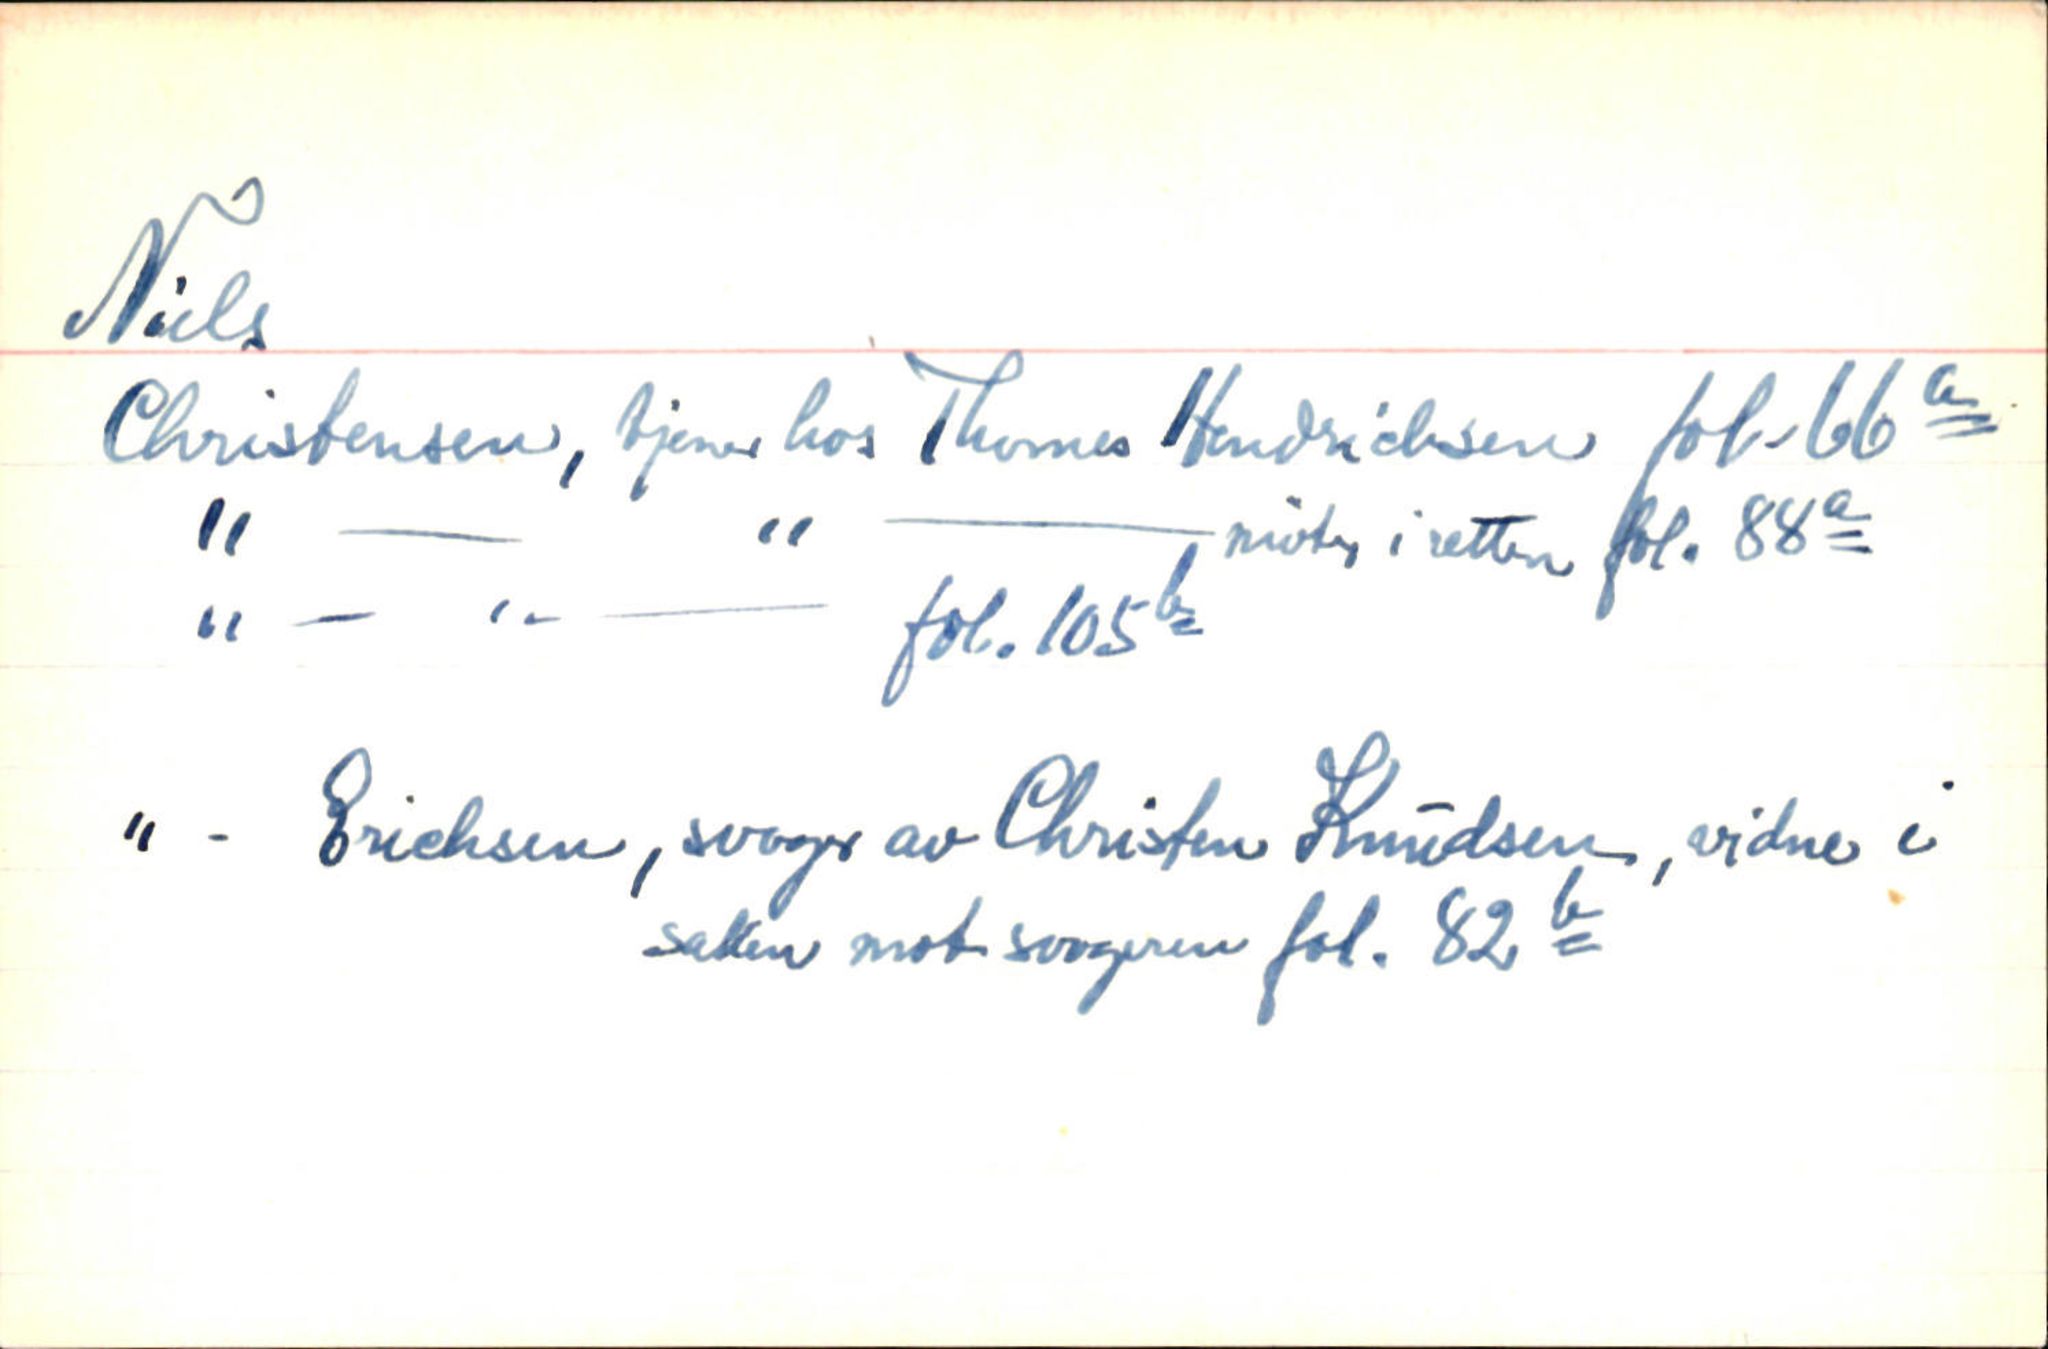 Niels
Christensen, tjener hos Thomes Hendrichsen fol. 66 a
" — " — møter i retten fol. 88 a
" — " — fol. 105 b
" - Erichsen, svoger av Christen Knudsen, vidne i
saken mot svogeren fol. 82 b